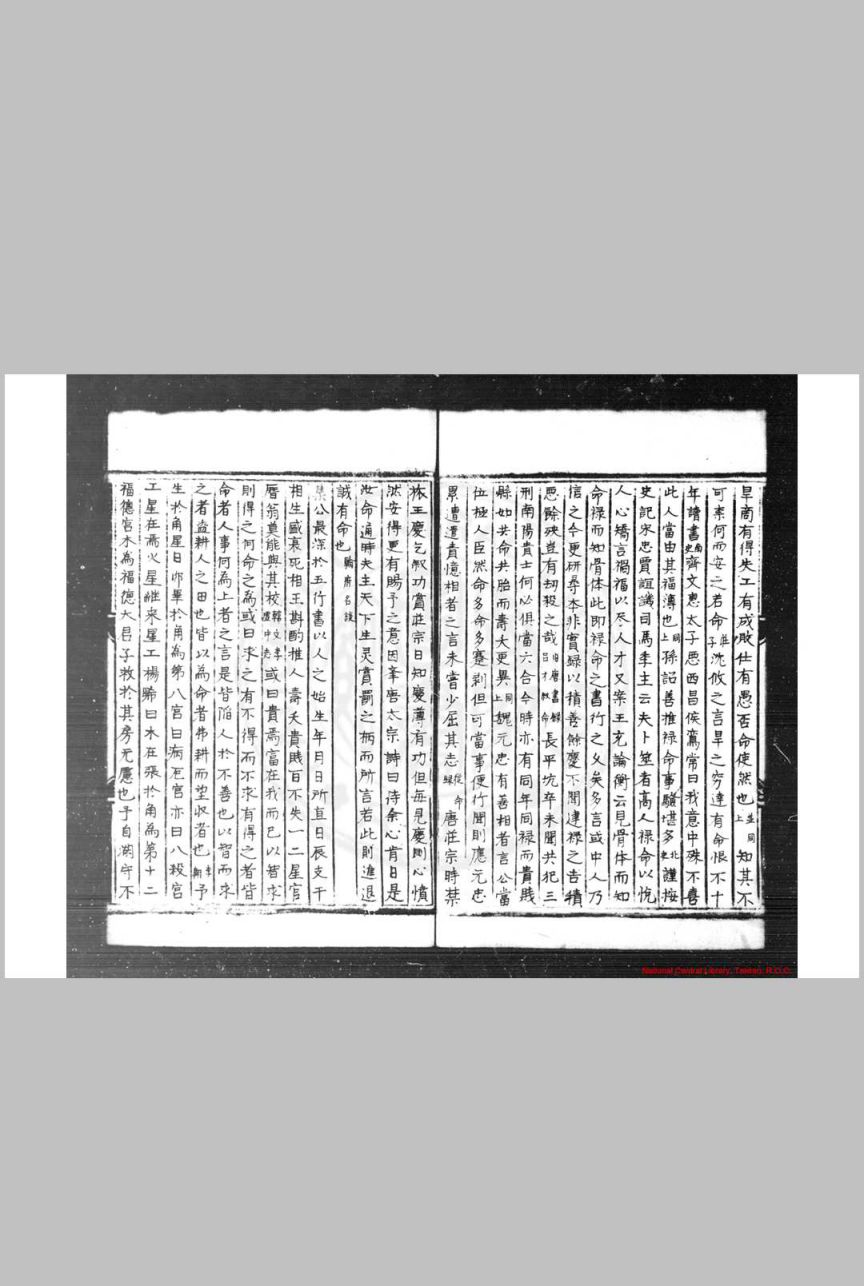 旱商有得失工有成敗仕有愚否命使然也並同上知其不
可柰何而安之若命莊子沈攸之言早之窮達有命恨不十
年讀書南史齊文惠太子惡西昌侯鸞常曰我意中殊不喜
此人當由其福薄也同上孫詔善推禄命事驗甚多北史謹按
史記宋忠賈誼譏司馬季主云夫卜筮者高人禄命以悅
人心矯言禍福以尽人才又案王充論衡云見骨体而知
命禄而知骨体此即禄命之書行之久矣多言或中人乃
信之今更研尋本非實録以積善餘慶不聞建禄之吉積
惡餘殃豈有刼殺之哉旧唐書吕才敘命長平坑卒未聞共犯三
刑南陽貴士何必俱當六合今時亦有同年同禄而貴賤
縣如共命共胎而壽夭更異同上魏元忠有善相者言公當
位極人臣然命多命多蹇剥但可當事便行聞則應元忠
累遭遣責憶相者之言未嘗少屈其志定命録唐莊宗時禁
旅王慶乞叙功賞莊宗曰知慶薄有功但每見慶則心憤
然安得更有賜予之意因奉唐太宗詩曰待余心肯日是
汝命通時夫主天下生灵賞罰之柄而所言若此則進退
誠有命也
公最深於五行書以人之始生年月日所直日辰支干
相生盛衰死相王斟酌推人壽夭貴賤百不失一二星官
曆翁莫能與其校韓文李虛中志或曰貴焉富在我而已以智求
則得之何命之為或曰求之有不得而不求有得之者皆
命者人事何為上者之言是皆陷人於不善也以智而求
之者盗耕人之田也皆以為命者弗耕而望收者也李翱予
生於角星日卯畢於角為第八宮曰病厄宮亦曰八殺宮
工星在焉火星継来星工楊晞曰木在張於角為第十二
福德宮木為福德大昌子救於其房无慮也予自湖守不
National Central Library, Taiwan, R.O.C.